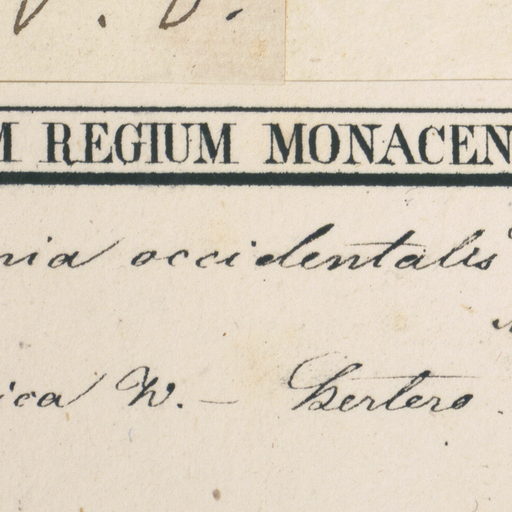 M REGIUM MONACEN
nia occidentalis
ica W. — Bertero.